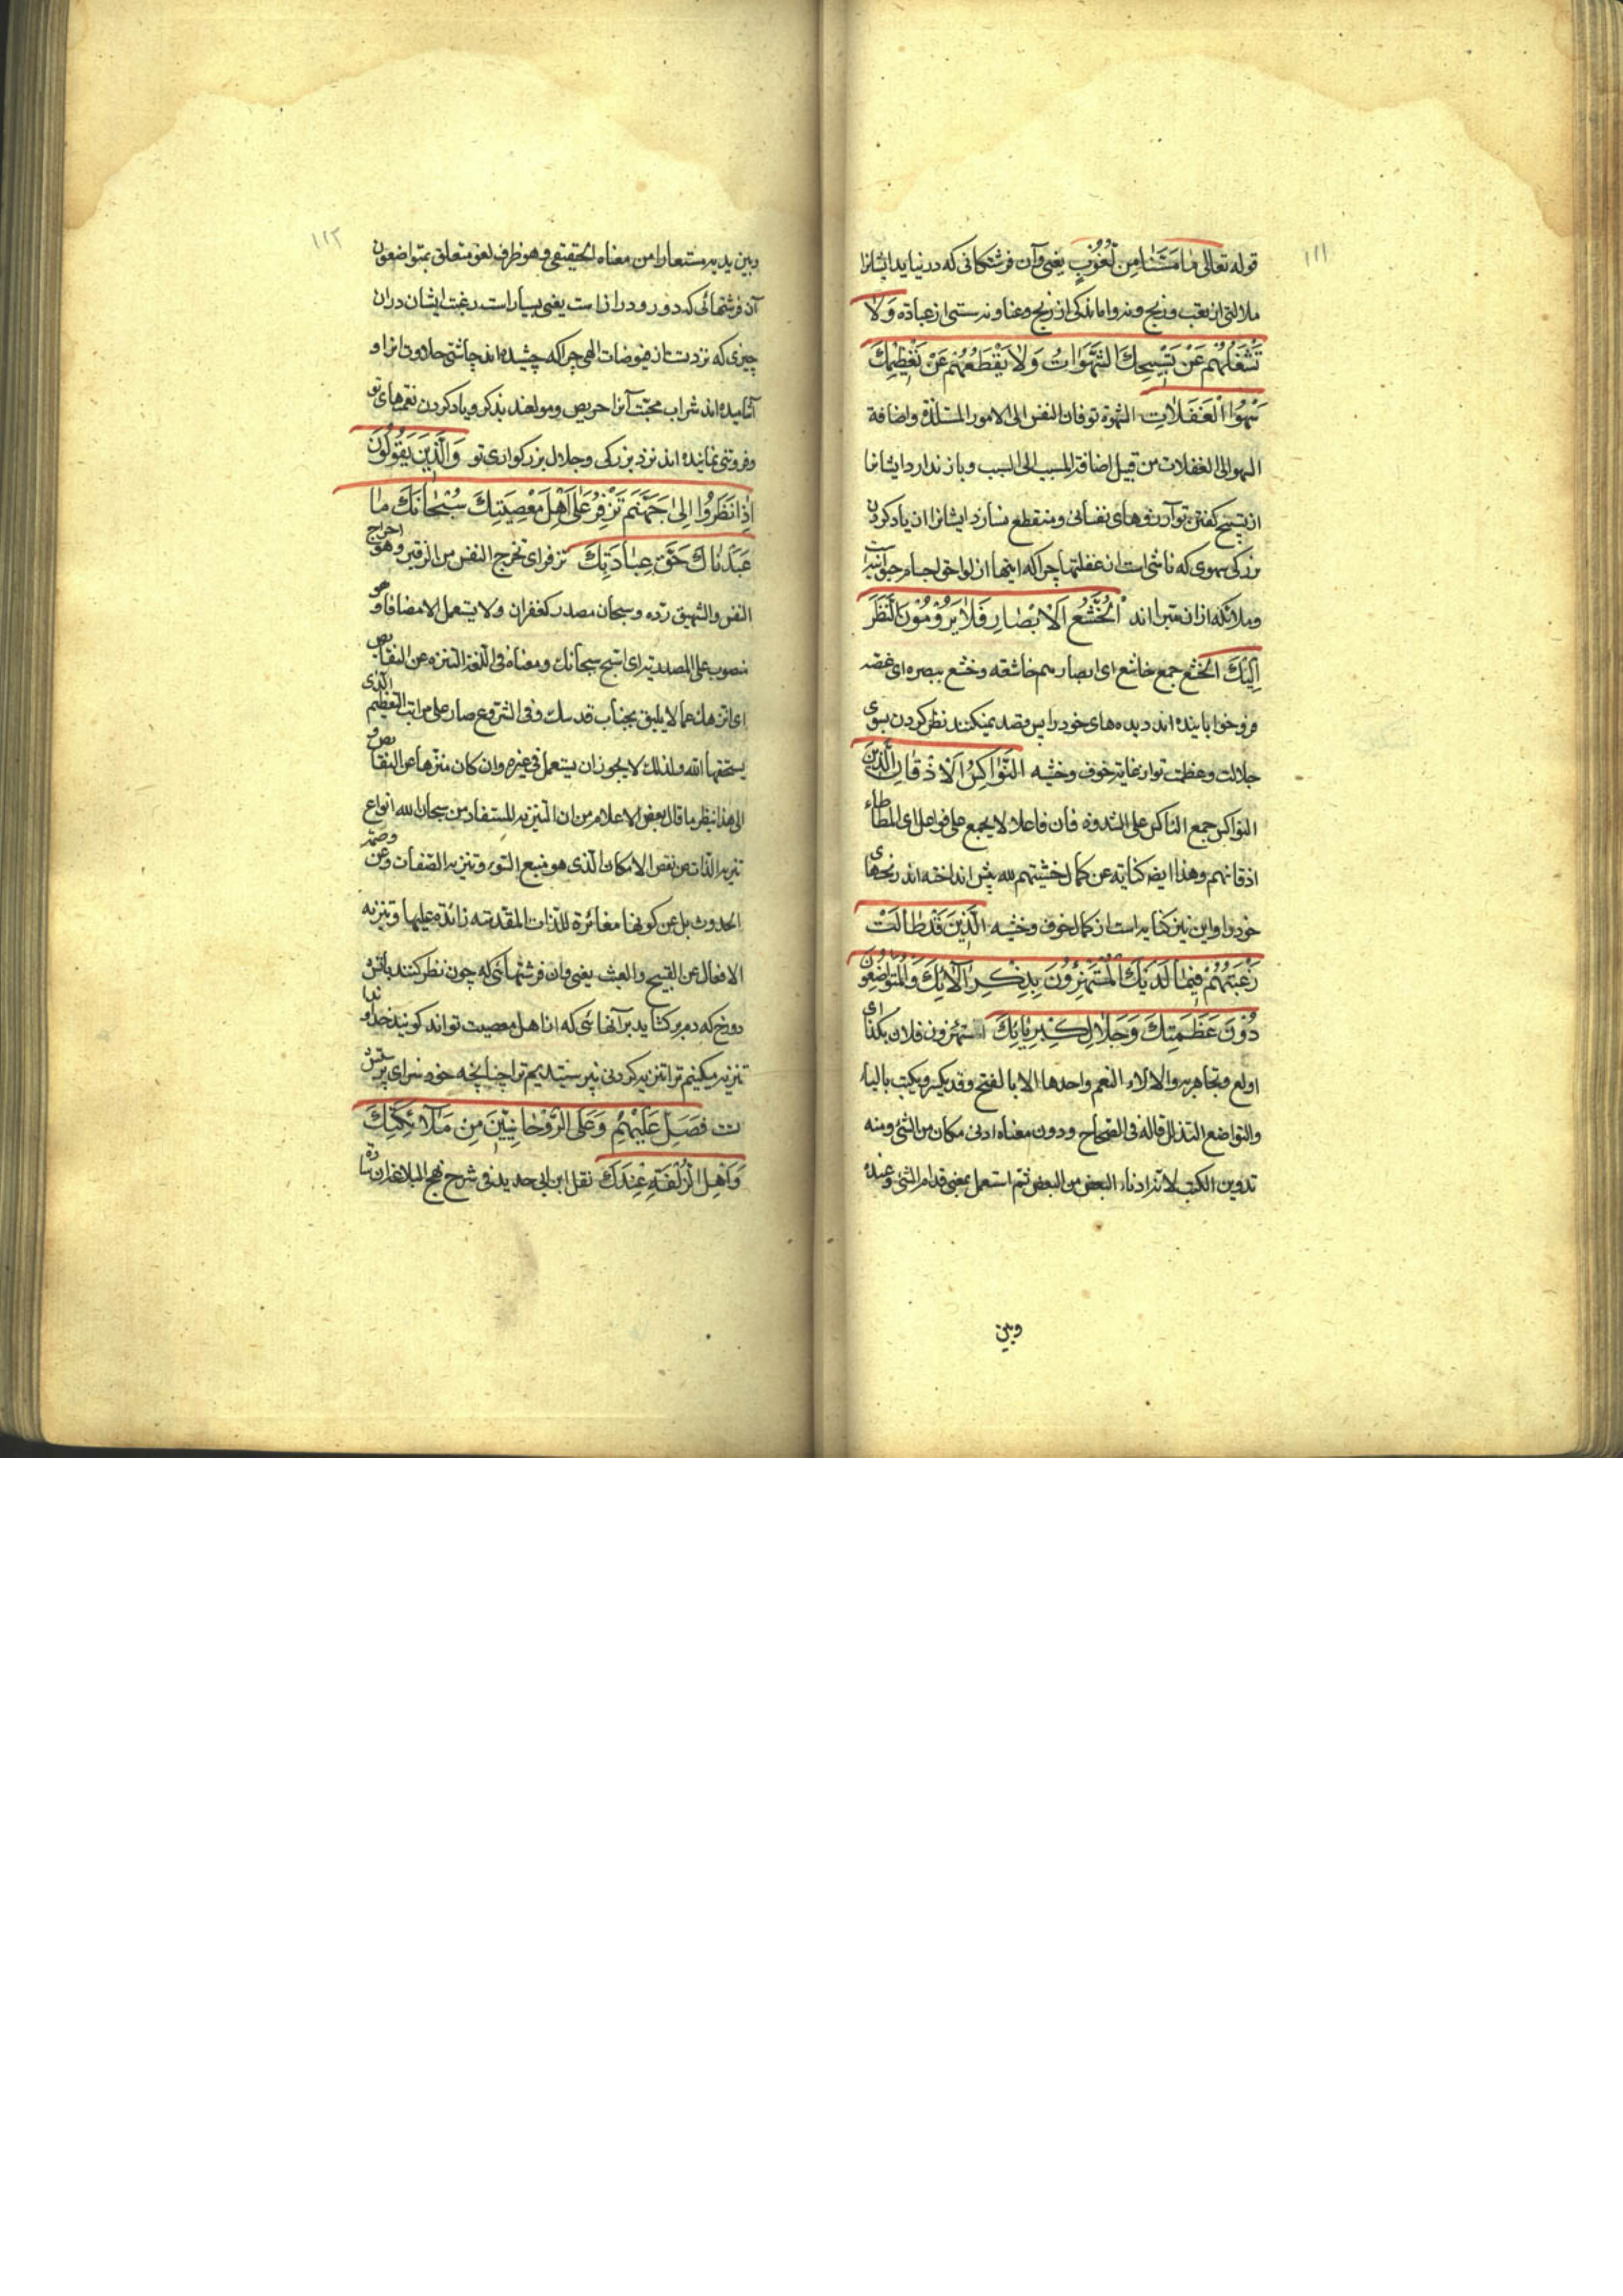 ١١١
قوله تعالى وما مسّنا من لغوب يعنى وآن فرشتكانى كه در نيايد ايشانرا
ملالتى از تعب و رنج و نه واماندكى از رنج و عنا و نه سستى از عبادة وَلا
تَشْغَلُهُمْ عَنْ تَسْبِيحِكَ الشَّهَوَاتُ وَلا يَقْطَعُهُمْ عَنْ تَعْظِيمِكَ
سَهْوُ الْغَفَلاتِ الشهوة توقان النفس الى الامور المستلذة واضافة
السهو الى الغفلات من قبيل اضافة المسبب الى السبب وباز ندارد ايشانرا
از تسبيح كفتن تو آرزوهاى نفسانى ومنقطع نسازد ايشانرا از ياد كردن
بزركى سهوى كه ناشى است از غفلتها چرا كه اينها از لواحق اجسام حيوانيه است
وملائكه ازان مبرا اند الْخُشَّعُ الْاَبْصَارِ فَلا يَرُومُونَ النَّظَرَ
اِلَيْكَ الخشع جمع خاشع اى ابصارهم خاشعه وخشع ببصره اى غضه
فرو خوابانيده اند ديده هاى خود را پس قصد نميكنند نظر كردن بسوى
جلالت وعظمت تو از غايت خوف وخشيه النَّوَاكِسُ الْاَذْقَانِ الَّذِينَ
النواكس جمع الناكس على الشذوذ فان فاعلا لا يجمع على فواعل اى المطاطاء
اذقانهم وهذا ايضا كناية عن كمال خشيتهم لله پيش انداخته اند زنخهاى
خود را واين نيز كنايه است از كمال خوف وخشيه الَّذِينَ قَدْ طَالَتْ
رَغْبَتُهُمْ فِيمَا لَدَيْكَ الْمُسْتَهْتِرُونَ بِذِكْرِ آلَائِكَ وَالْمُتَوَاضِعُونَ
دُونَ عَظَمَتِكَ وَجَلَالِ كِبْرِيَائِكَ استهتر فلان بكذا اى
اولع وتجاهر به والالاء النعم واحدها الا بالفتح وقد يكسر ويكتب بالياء
والتواضع التذلل قاله فى الصحاح ودون معناه ادنى مكان من الشئ ومنه
تدوين الكتب لانه ادناء البعض من البعض ثم استعمل بمعنى قدام الشئ وعنده
وبين
١١٢
وبين يديه مستعارا من معناه الحقيقى وهو ظرف لغو متعلق بمتواضعون
آن فرشتهائى كه دور و دراز است يعنى بسيار است رغبت ايشان دران
چيزى كه نزد تست از فيوضات الهى چرا كه چشيده اند چاشنى حلاوت انرا و
آشاميده اند شراب محبت آنرا حريص ومولعند بذكر وياد كردن نعمتهاى تو
وفروتنى نماينده اند نزد بزركى وجلال بزركوارى تو وَالَّذِينَ يَقُولُونَ
اِذَا نَظَرُوا اِلَىٰ جَهَنَّمَ تَزْفِرُ عَلَىٰ اَهْلِ مَعْصِيَتِكَ سُبْحَانَكَ مَا
عَبَدْنَاكَ حَقَّ عِبَادَتِكَ تزفر اى تخرج النفس من الزفير وهو اخراج
النفس والشهيق رده وسبحان مصدر كغفران ولا يستعمل الا مضافا وهو
منصوب على المصدرية اى اسبح سبحانك ومعناه فى اللغة التنزه عن النقايص
اى انزهك عما لا يليق بجناب قدسك وفى الشرع صار على مراتب التعظيم الذى
يستحقها الله ولذلك لا يجوز ان يستعمل فى غيره وان كان منزها عن النقايص و
الى هذا ينظر ما قال بعض الاعلام من ان التنزيه المستفاد من سبحان الله انواع
تنزيه الذات عن نقص الامكان الذى هو منبع السوء وتنزيه الصفات عن وصمة
الحدوث بل عن كونها مغائرة للذات المقدسه زائدة عليها وتنزيه
الافعال عن القبيح والعبث يعنى وان فرشتهائى كه چون نظر كنند باتش
دوزخ كه دم بركشايد بر آنهائى كه از اهل معصيت تواند كويند خداوندا
تنزيه ميكنيم ترا تنزيه كردنى نپرستيديم ترا چنانچه خود سزاى پرستش
ت فَصَلِّ عَلَيْهِمْ وَعَلَى الرُّوحَانِيِّينَ مِنْ مَلَائِكَتِكَ
وَاَهْلِ الزُّلْفَةِ عِنْدَكَ نقل ابن ابى حديد فى شرح نهج البلاغة ان